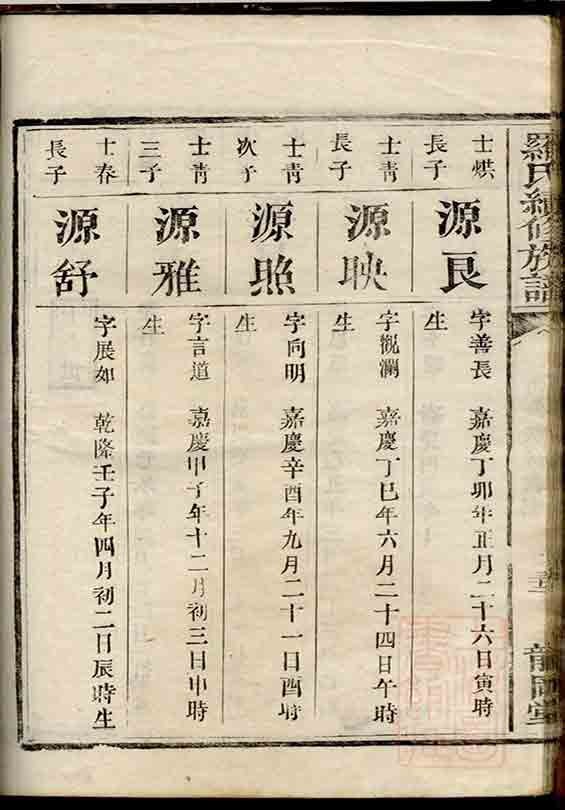 羅氏續修族譜
士烘
長子
源良
字善長　嘉慶丁卯年正月二十六日寅時
生
士青
長子
源映
字觀瀾　嘉慶丁巳年六月二十四日午時
生
士青
次子
源照
字向明　嘉慶辛酉年九月二十一日酉時
生
士青
三子
源雅
字言道　嘉慶甲子年十二月初三日申時
生
士春
長子
源舒
字展如　乾隆壬子年四月初二日辰時生